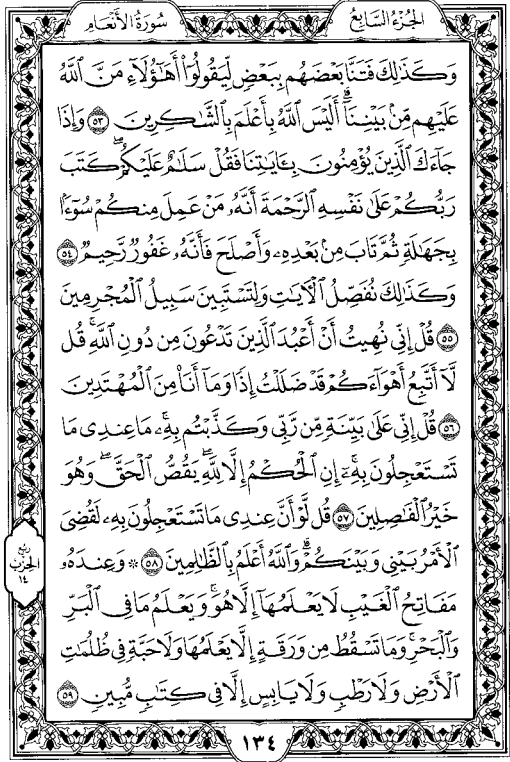 الجزء السابع
سورة الأنعام
وَكَذَٰلِكَ فَتَنَّا بَعْضَهُم بِبَعْضٍ لِّيَقُولُوٓا۟ أَهَـٰٓؤُلَآءِ مَنَّ ٱللَّهُ
عَلَيْهِم مِّنۢ بَيْنِنَآ ۗ أَلَيْسَ ٱللَّهُ بِأَعْلَمَ بِٱلشَّـٰكِرِينَ ٥٣ وَإِذَا
جَآءَكَ ٱلَّذِينَ يُؤْمِنُونَ بِـَٔايَـٰتِنَا فَقُلْ سَلَـٰمٌ عَلَيْكُمْ ۖ كَتَبَ
رَبُّكُمْ عَلَىٰ نَفْسِهِ ٱلرَّحْمَةَ أَنَّهُۥ مَنْ عَمِلَ مِنكُمْ سُوٓءًۢا
بِجَهَـٰلَةٍ ثُمَّ تَابَ مِنۢ بَعْدِهِۦ وَأَصْلَحَ فَأَنَّهُۥ غَفُورٌ رَّحِيمٌ ٥٤
وَكَذَٰلِكَ نُفَصِّلُ ٱلْـَٔايَـٰتِ وَلِتَسْتَبِينَ سَبِيلُ ٱلْمُجْرِمِينَ
٥٥ قُلْ إِنِّى نُهِيتُ أَنْ أَعْبُدَ ٱلَّذِينَ تَدْعُونَ مِن دُونِ ٱللَّهِ ۚ قُل
لَّآ أَتَّبِعُ أَهْوَآءَكُمْ ۙ قَدْ ضَلَلْتُ إِذًا وَمَآ أَنَا۠ مِنَ ٱلْمُهْتَدِينَ
٥٦ قُلْ إِنِّى عَلَىٰ بَيِّنَةٍ مِّن رَّبِّى وَكَذَّبْتُم بِهِۦ ۚ مَا عِندِى مَا
تَسْتَعْجِلُونَ بِهِۦٓ ۚ إِنِ ٱلْحُكْمُ إِلَّا لِلَّهِ ۖ يَقُصُّ ٱلْحَقَّ ۖ وَهُوَ
خَيْرُ ٱلْفَـٰصِلِينَ ٥٧ قُل لَّوْ أَنَّ عِندِى مَا تَسْتَعْجِلُونَ بِهِۦ لَقُضِىَ
ٱلْأَمْرُ بَيْنِى وَبَيْنَكُمْ ۗ وَٱللَّهُ أَعْلَمُ بِٱلظَّـٰلِمِينَ ٥٨ * وَعِندَهُۥ
مَفَاتِحُ ٱلْغَيْبِ لَا يَعْلَمُهَآ إِلَّا هُوَ ۚ وَيَعْلَمُ مَا فِى ٱلْبَرِّ
وَٱلْبَحْرِ ۚ وَمَا تَسْقُطُ مِن وَرَقَةٍ إِلَّا يَعْلَمُهَا وَلَا حَبَّةٍ فِى ظُلُمَـٰتِ
ٱلْأَرْضِ وَلَا رَطْبٍ وَلَا يَابِسٍ إِلَّا فِى كِتَـٰبٍ مُّبِينٍ ٥٩
ربع
الحزب
١٤
١٣٤